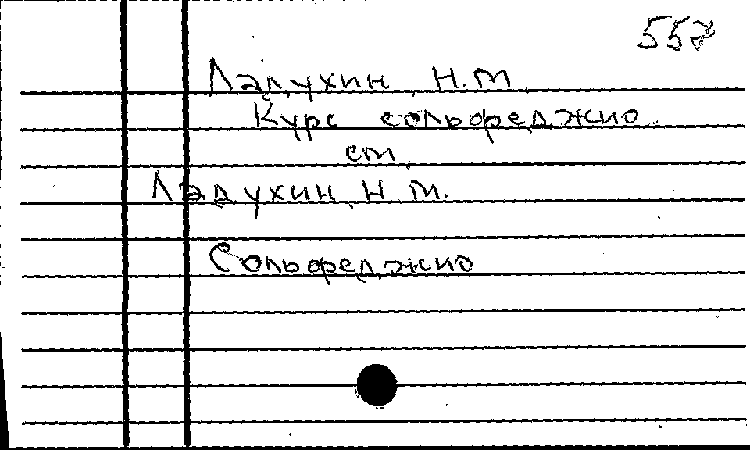 557
Ладухин, Н.М.
Курс сольфеджио.
см.
Ладухин, Н.М.
Сольфеджио